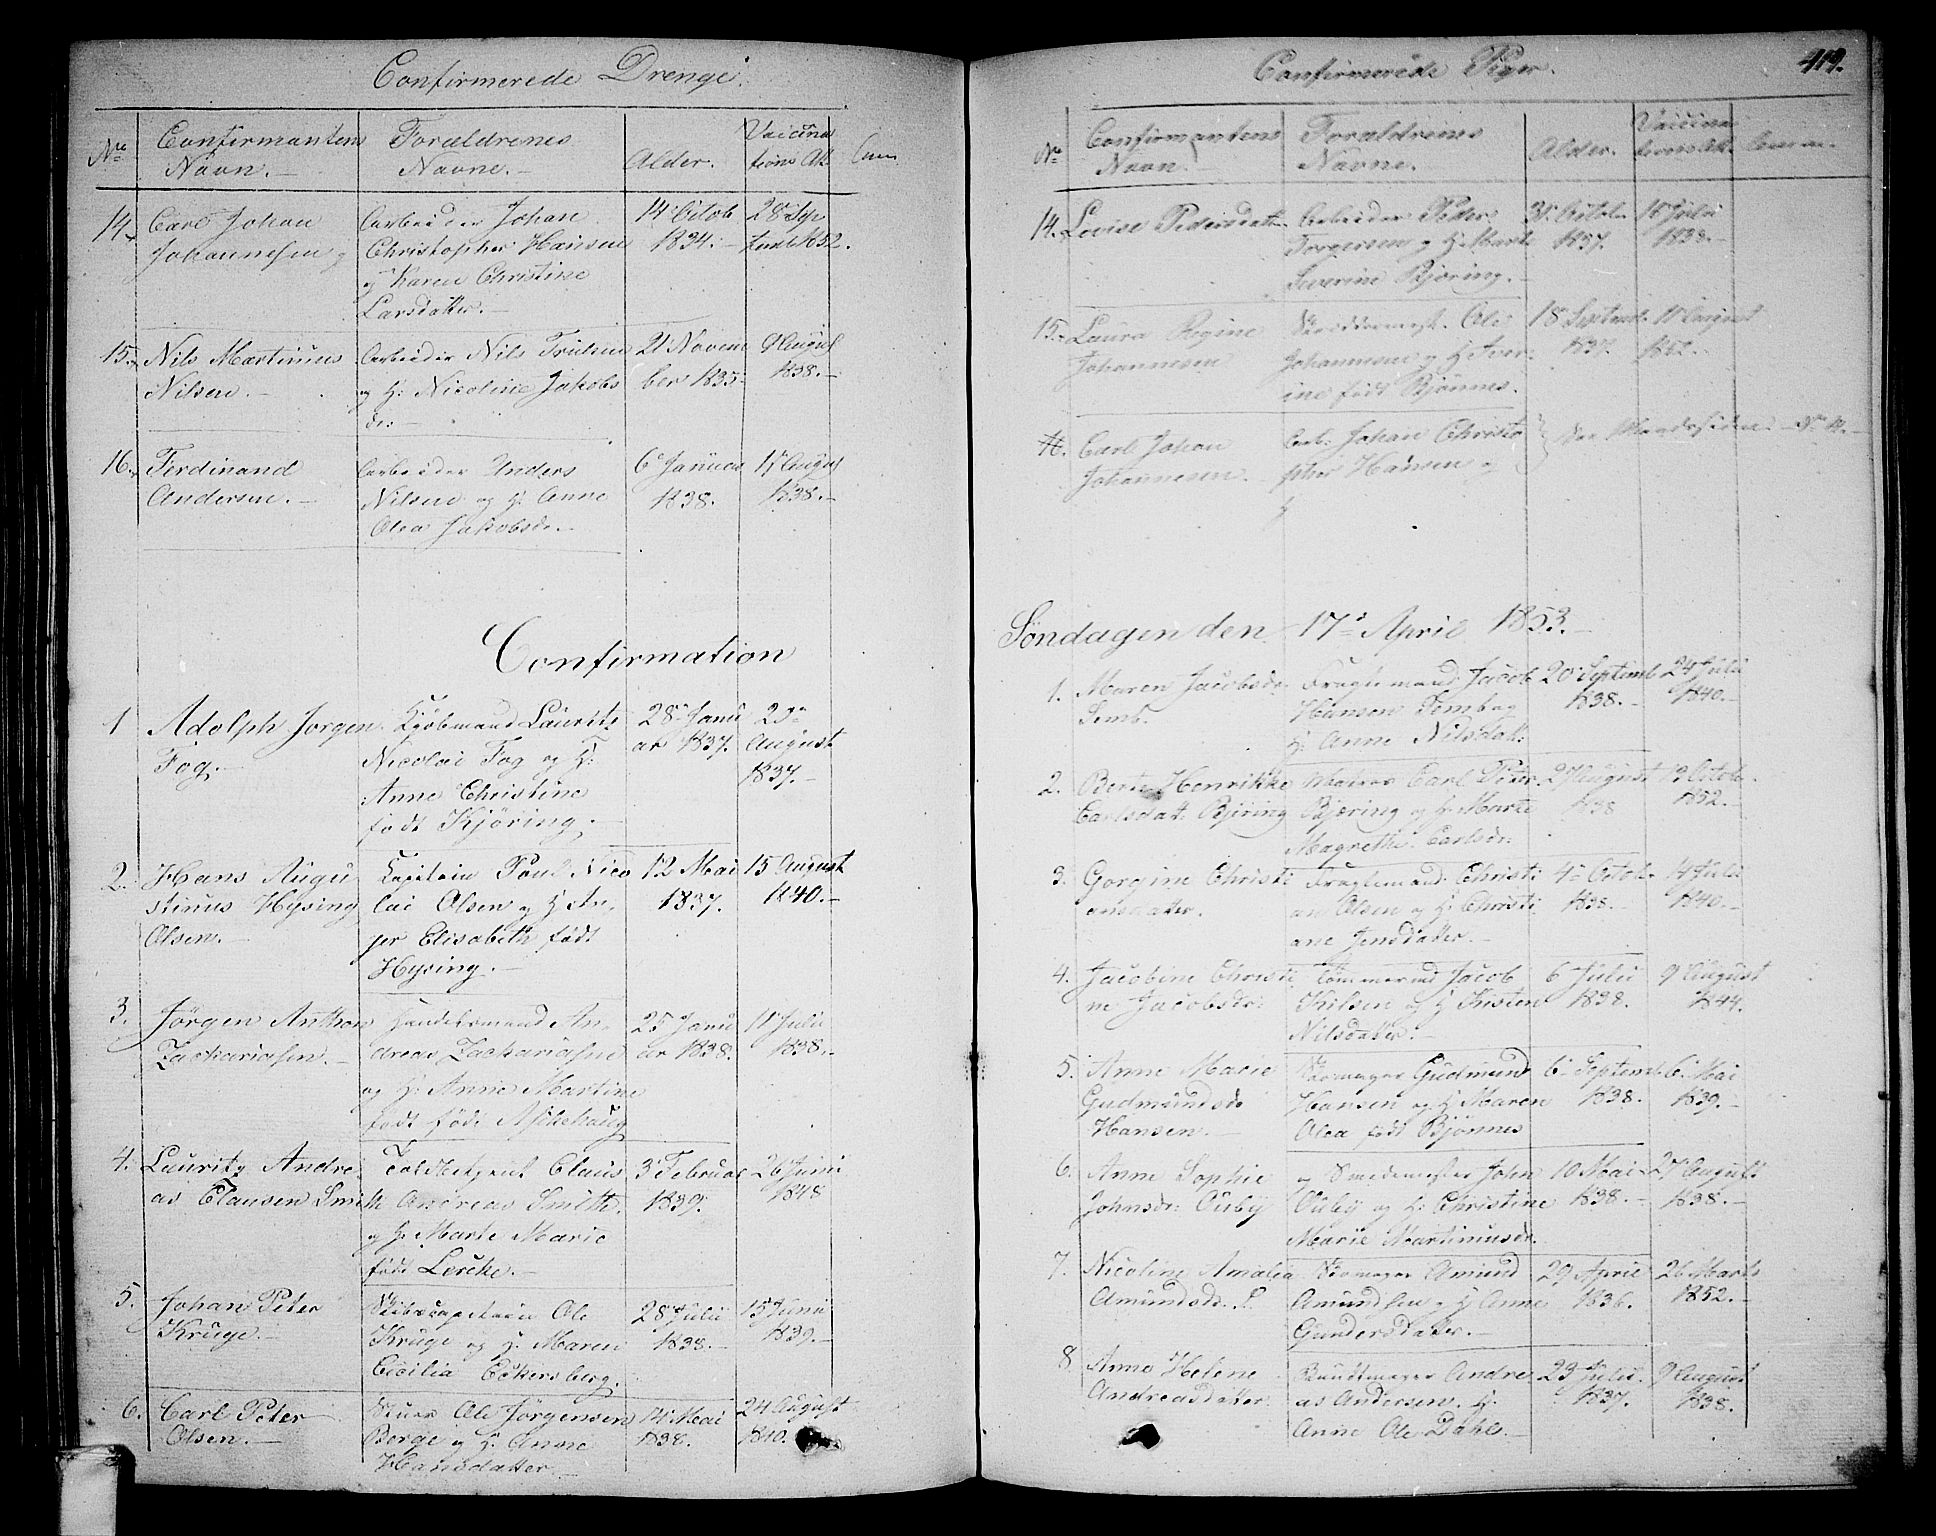 Confirmerede Drenge.
No
Confirmantens
Navn.
Forældrenes
Navne.
Alder.
Vaccina
tions At.
14.
Carl Johan
Johannesen
Arbeider Johan
Christopher Hansen
og Karen Christine
Larsdatter.
14 Octob
1834.
28 Sep
temb. 1852.
15.
Nils Martinius
Nilsen.
Arbeider Nils
og H: Nicoline Jakobs
dr:
21 Novem
ber 1835.
9 August
1838.
16.
Ferdinand
Andersen.
Arbeider Anders
Nilsen og H: Anne
Olea Jakobsdr.
6 Januar
1838.
17 August
1838.
Confirmation
1
Adolph Jørgen
Fog.
Kjøbmand Lauritz
Nicolai Fog og H:
Anne Christine
født Kjöring.
28 Janu
ar 1837.
23
August
1837.
2.
Hans Augu
stinus Hysing
Olsen.
Capitain Poul Nico
lai Olsen og H: In
ger Elisabeth født
Hysing.
12 Mai
1837.
15 August
1840.
3.
Jörgen Anthon
Zachariasen.
Handelsmand An
dreas Zachariasen
og H: Anne Martine
født født Askehaug
25 Janu
ar 1838.
11 Julii
1838.
4.
Lauritz Andre
as Clausen Smith
Toldbetjent Claus
Andreas Smith
og H: Marte Marie
født Lerche.
3 Februar
1839.
26 Juni
1848
5.
Johan Peter
Krüge.
Skibscapitain Ole
Krüge og H: Maren
Cicilia Eckersberg.
28 Julii
1838.
15 Junii
1839.
6.
Carl Peter
Olsen.
Ole Jörgensen
Berge og H: Anne
Hansdatter
14 Mai
1838.
24 August
1840.
Confirmerede Piger.
419.
No
Confirmantens
Navn.
Forældrenes
Navne.
Alder.
Vaccina
tions At.
14.
Lovise Pedersdatter
Arbeider Peder
Torgersen og H: Marte
Severine Björing.
3 Octob
1837.
11 Julii
1838.
15.
Laura Regine
Johannesen
Ole
Johannesen og H: Aver
ine født Bjönnes.
18 Septemb.
1837.
11 August
1852.
Carl Johan
Johannesen
Arb: Johan Christo
pher Hansen og
Söndagen den 17 April 1853.
1.
Maren Jacobsdr
Semb.
Fragtemand Jacob
Hansen Semb og
H: Anne Nilsdatt:
20 Septemb
1838.
24 Julii
1840.
2.
Berte Henrikke
Carlsdat: Björing
Carl Peter
Bjøring og H: Marte
Magrethe Carlsdr:
27 August
1838
13 Octob.
1852.
3.
Gorgine Christi
ansdatter.
Fragtemand Christi
an Olsen og H: Christi
ane Jensdatter.
4 Octob.
1838.
14 Julii
1840.
4.
Jacobine Christi
ne Jacobsdr:
Tömmermd Jacob
Nilsen og H: Kisten
Nilsdatter.
6 Julii
1838.
9 August
1844.
5.
Anne Marie
Gudmundsdr
Hansen.
Skomager Gudmund
Hansen og H: Maren
Olea født Bjönnes
6 Septemb.
1838.
6 Mai
1839.
6.
Anne Sophie
Johnsdr: Ouby
Smedemester John
Ouby og H: Christine
Marie Martiniusdr.
10 Mai
1838.
27 August
1838.
7.
Nicoline Amalia
Amundsdr.
Skomager Amund
Amundsen og H: Anne
Gundersdatter.
29 April
1836.
26 Marts
1852.
8
Anne Helene
Andreasdatter
Andre
as Andersen. H:
Anne Ole Dahls.
23 Julii
1837.
9 August
1838.